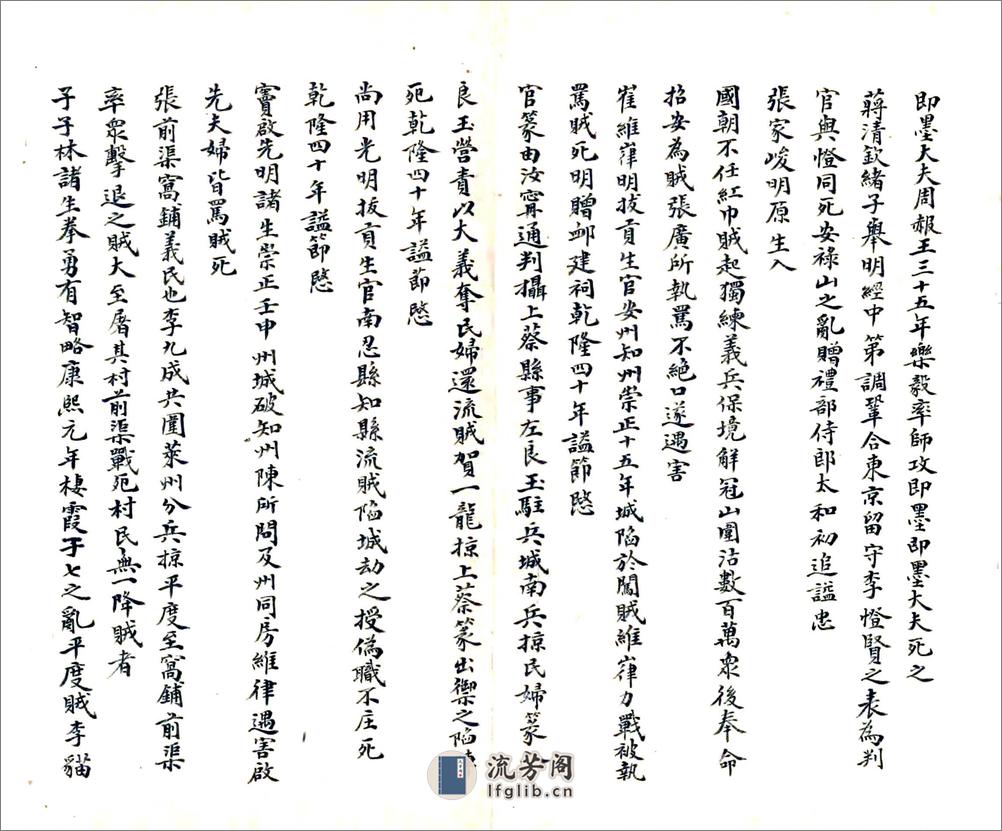 即墨大夫周赧王三十五年樂毅率師攻即墨即墨大夫死之
蔣清欽緒子舉明經中第調鞏合東京留守李憕賢之表為判
官與憕同死安祿山之亂贈禮部侍郎太和初追謚忠
張家峻明原生入
國朝不任紅巾賊起獨練義兵保境解冠山圍沽數百萬衆後奉命
招安為賊張廣所執罵不絕口遂遇害
崔維嵂明拔貢生官安州知州崇正十五年城陷於闖賊維嵂力戰被執
罵賊死明贈卹建祠乾隆四十年謚節愍
官篆由汝甯通判攝上蔡縣事左良玉駐兵城南兵掠民婦篆
良玉營責以大義奪民婦還流賊賀一龍掠上蔡篆出禦之陷
死乾隆四十年謚節愍
尚用光明拔貢生官南忍縣知縣流賊陷城劫之授偽職不庄死
乾隆四十年謚節愍
竇啟先明諸生崇正壬申州城破知州陳所問及州同房維律遇害啟
先夫婦皆罵賊死
張前渠窩鋪義民也李九成共圍萊州分兵掠平度至窩鋪前渠
率衆擊退之賊大至屠其村前渠戰死村民無一降賊者
子子林諸生拳勇有智略康熙元年棲霞于七之亂平度賊李貓
流芳阁
lfglib.cn